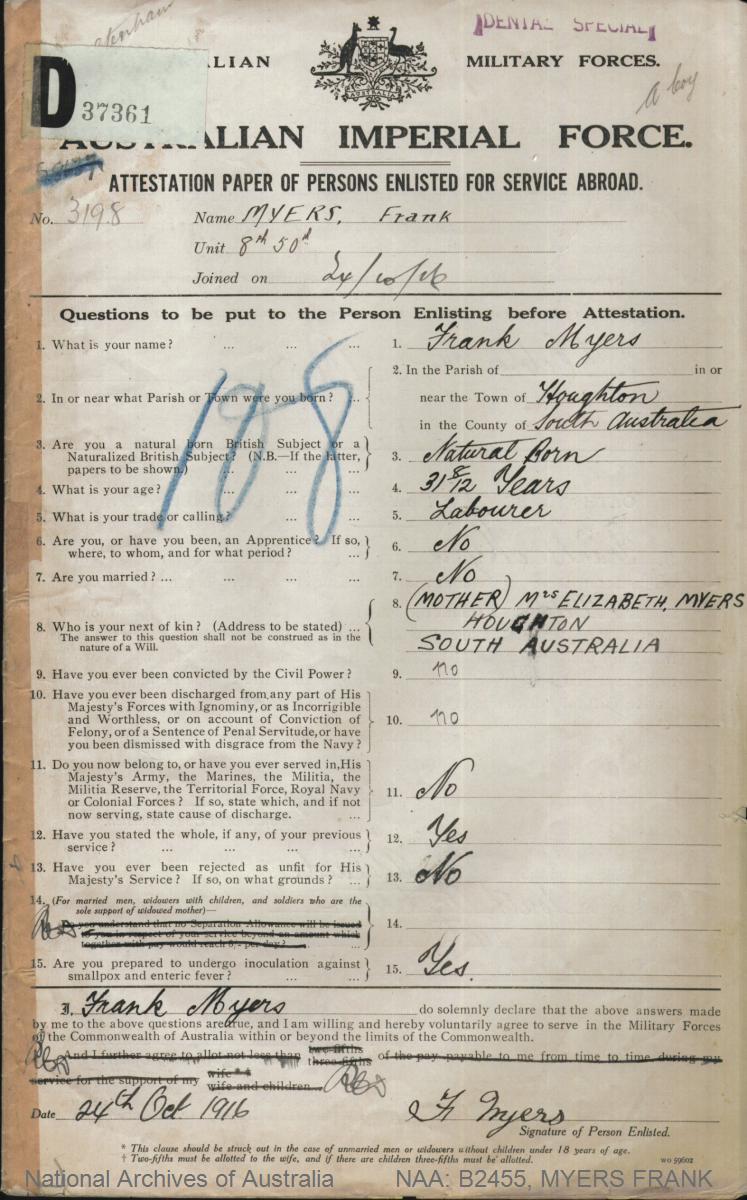 DENTAL SPECIAL
MILITARY FORCES.
D 37361
AUSTRALIAN IMPERIAL FORCE.
ATTESTATION PAPER OF PERSONS ENLISTED FOR SERVICE ABROAD.
No. 3198 Name MYERS, Frank
Unit 8th 50th
Joined on 24/10/16
Questions to be put to the Person Enlisting before Attestation.
1. What is your name? ... ... ... 1. Frank Myers
2. In or near what Parish or Town were you born? ... 2. In the Parish of in or
near the Town of Houghton
in the County of South Australia
3. Are you a natural born British Subject or a
Naturalized British Subject? (N.B.—If the latter,
papers to be shown.) ... ... ... 3. Natural Born
4. What is your age? ... ... ... 4. 31 8/12 Years
5. What is your trade or calling? ... ... 5. Labourer
6. Are you, or have you been, an Apprentice? If so,
where, to whom, and for what period? ... 6. No
7. Are you married? ... ... ... ... 7. No
8. Who is your next of kin? (Address to be stated) ... 8. (MOTHER) Mrs ELIZABETH, MYERS
HOUGHTON
SOUTH AUSTRALIA
The answer to this question shall not be construed as in the
nature of a Will.
9. Have you ever been convicted by the Civil Power? 9. no
10. Have you ever been discharged from any part of His
Majesty's Forces with Ignominy, or as Incorrigible
and Worthless, or on account of Conviction of
Felony, or of a Sentence of Penal Servitude, or have
you been dismissed with disgrace from the Navy? 10. no
11. Do you now belong to, or have you ever served in, His
Majesty's Army, the Marines, the Militia, the
Militia Reserve, the Territorial Force, Royal Navy
or Colonial Forces? If so, state which, and if not
now serving, state cause of discharge. ... 11. No
12. Have you stated the whole, if any, of your previous
service? ... ... ... ... 12. Yes
13. Have you ever been rejected as unfit for His
Majesty's Service? If so, on what grounds? ... 13. No
14. (For married men, widowers with children, and soldiers who are the
sole support of widowed mother)—
Do you understand that no Separation Allowance will be issued
to you in respect of your service beyond an amount which
together with pay would reach 8/- per day? ... 14.
15. Are you prepared to undergo inoculation against
smallpox and enteric fever? ... ... 15. Yes.
108
I, Frank Myers do solemnly declare that the above answers made
by me to the above questions are true, and I am willing and hereby voluntarily agree to serve in the Military Forces
of the Commonwealth of Australia within or beyond the limits of the Commonwealth.
And I further agree to allot not less than two-fifths three-fifths of the pay payable to me from time to time during my
service for the support of my wife * † wife and children.
Date 24th Oct 1916 F Myers
Signature of Person Enlisted.
* This clause should be struck out in the case of unmarried men or widowers without children under 18 years of age.
† Two-fifths must be allotted to the wife, and if there are children three-fifths must be allotted. WO 59602
National Archives of Australia NAA: B2455, MYERS FRANK